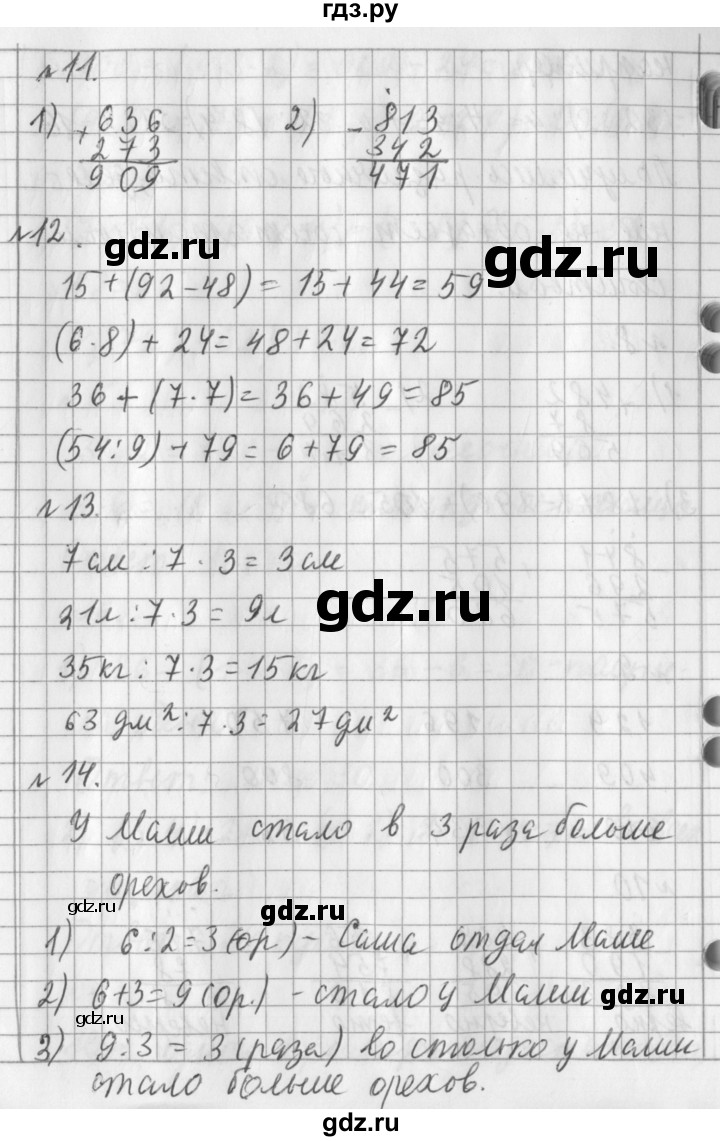 гдз.ру
№11.
1) + 636
273
909
2) - 813
342
471
№12.
gdz.ru
gdz.ru
15+(92-48)=15+44=59
(6·8)+24=48+24=72
36+(7·7)=36+49=85
(54:9)+79=6+79=85
№13.
7см:7·3=3см
gdz.ru
21л:7·3=9л
35кг:7·3=15кг
63дм²:7·3=27дм²
№14.
У Маши стало в 3 раза больше
орехов.
gdz.ru
gdz.ru
1) 6:2=3(ор.)- Саша отдал Маше
2) 6+3=9(ор.) - стало у Маши
gdz.ru
gdz.ru
3) 9:3=3(раза) во столько у Маши
стало больше орехов.
gdz.ru